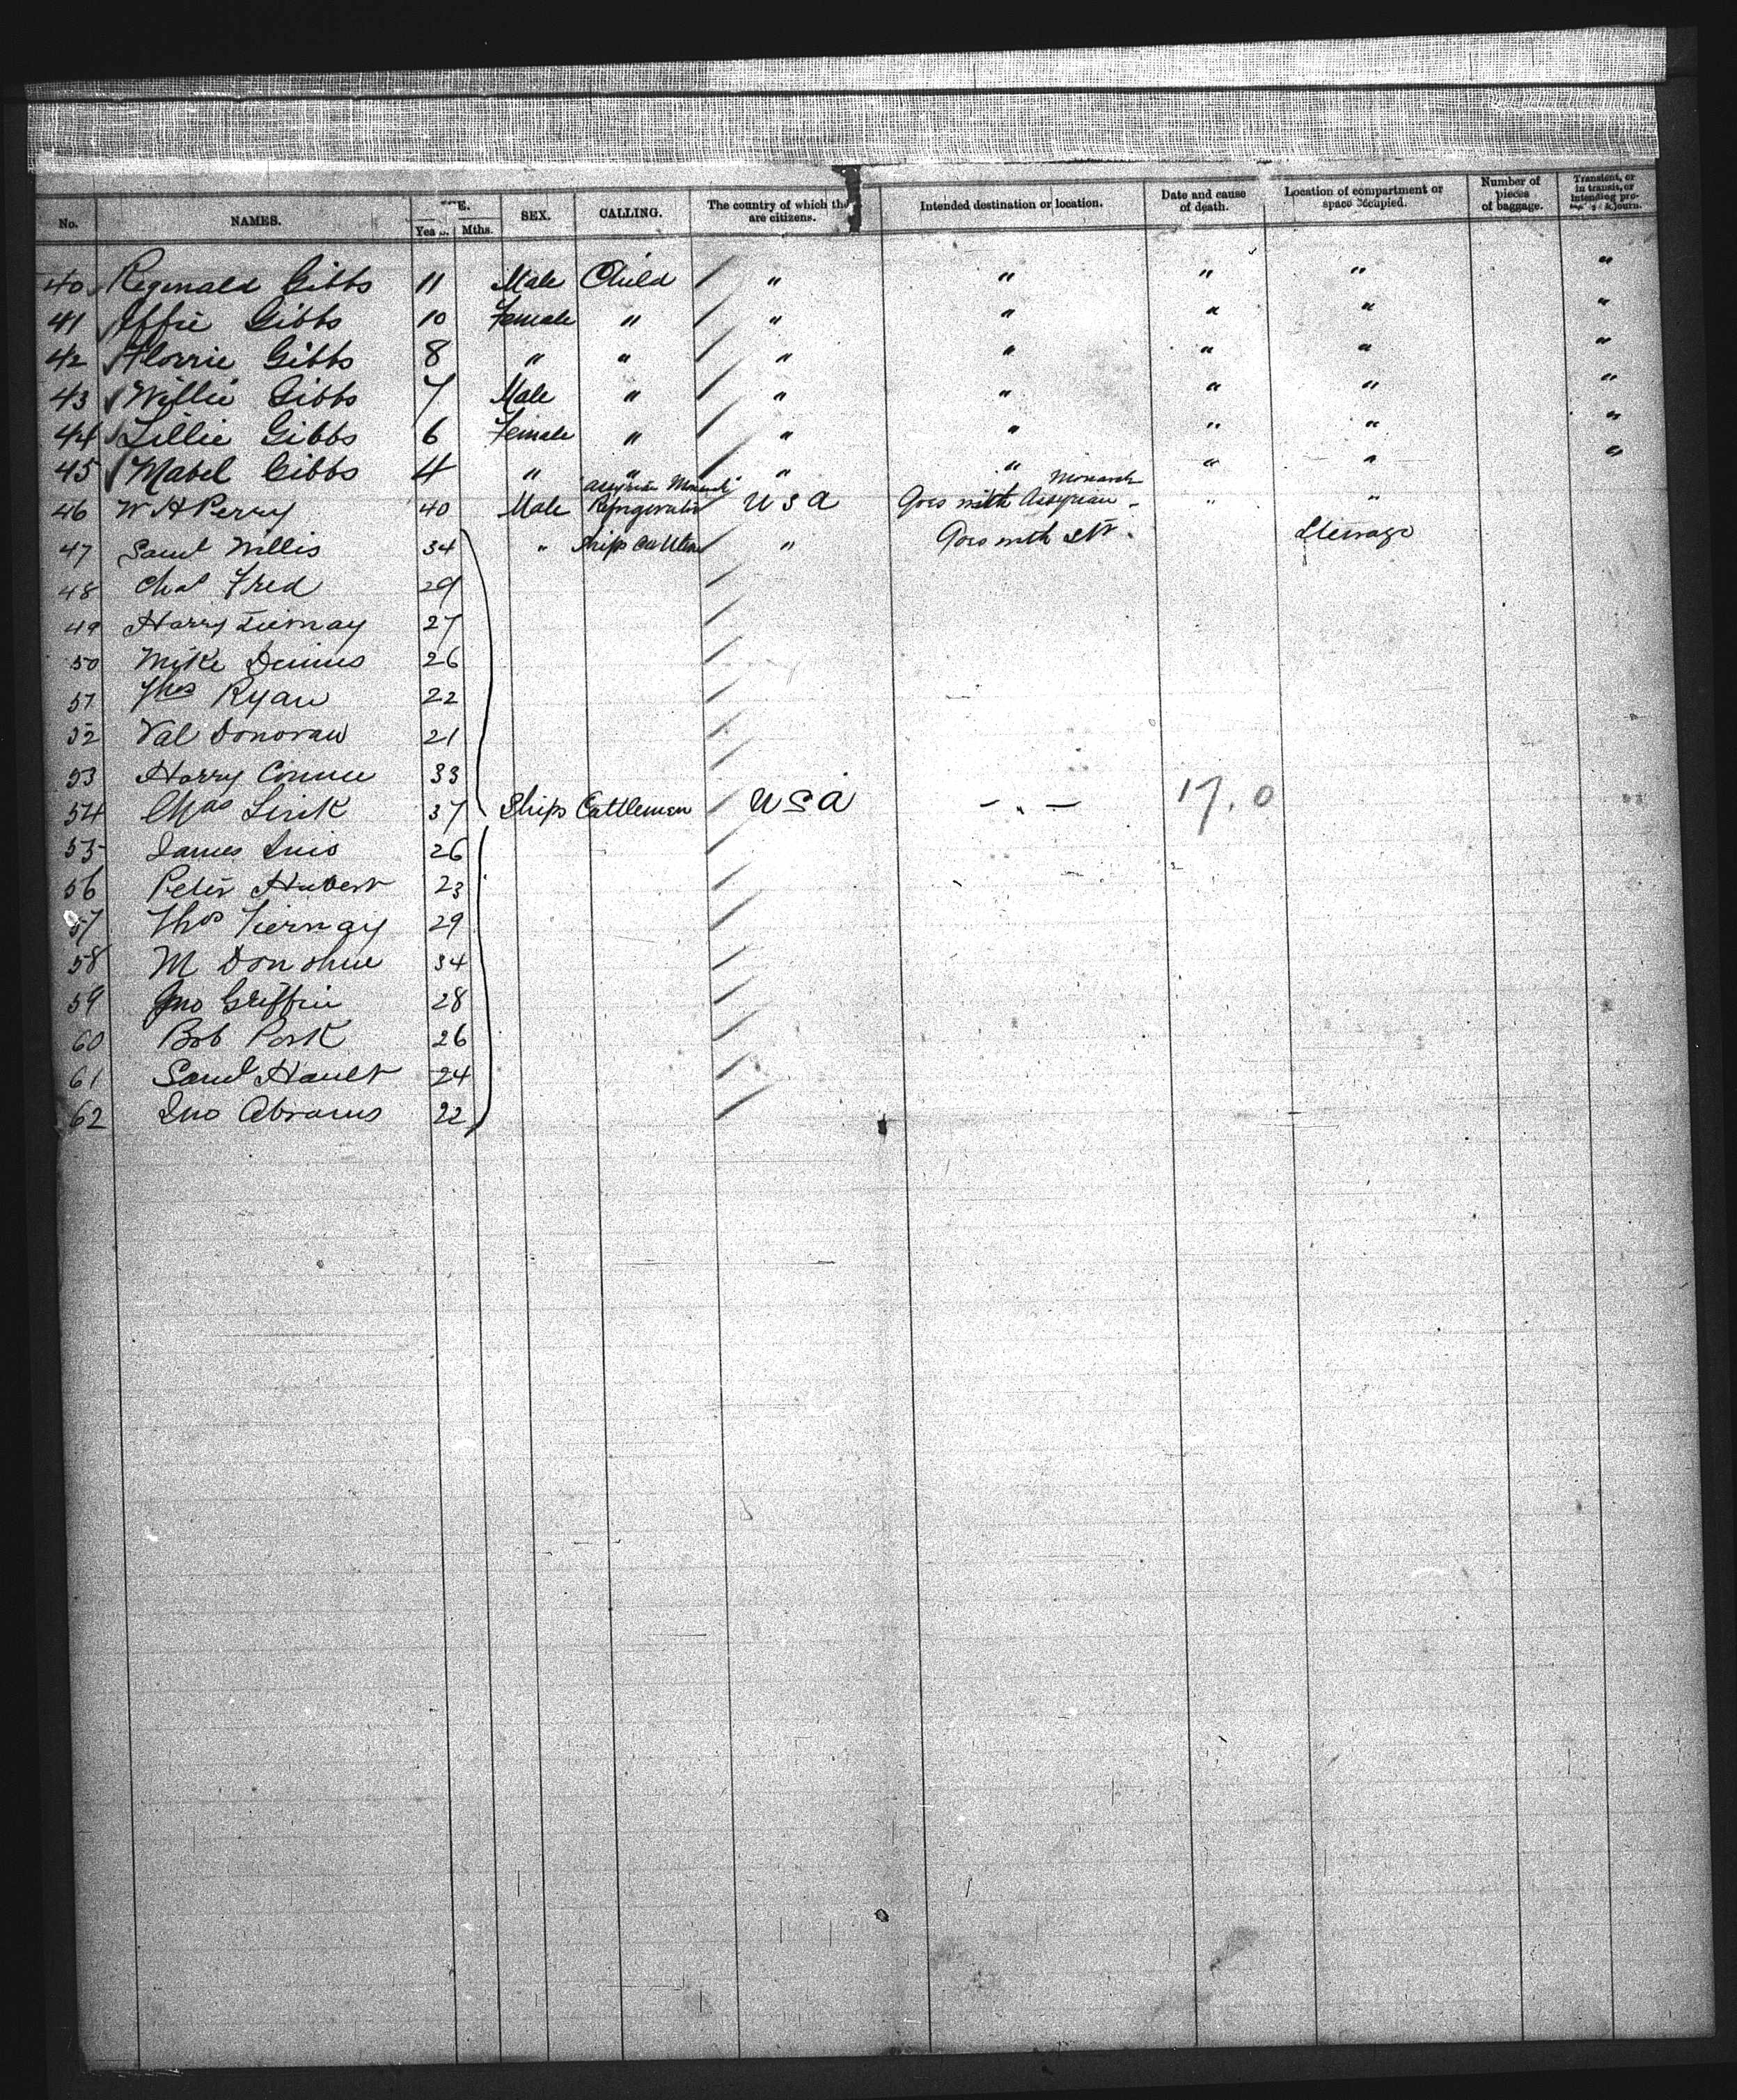 No. NAMES. E. SEX. CALLING. The country of which th are citizens. Intended destination or location. Date and cause of death. Location of compartment or space occupied. Number of pieces of baggage. Transient, or in transit, or intending
Mths.
40 Reginald Gibbs 11 Male Child " " " " "
41 Effie Gibbs 10 Female " " " " " "
42 Florrie Gibbs 8 " " " " " " "
43 Willie Gibbs 7 Male " " " " " "
44 Lillie Gibbs 6 Female " " " " " "
45 Mabel Gibbs 4 " " " " " " "
46 W H Perry 40 Male Assyrian Monarch USA Goes with Assyrian Monarch " "
47 Saml Willis 34 " Ships Cattleman " Goes with Str. Steerage
48 Chas Fred 29
49 Harry Tiernay 27
50 Mike Dennis 26
51 Thos Ryan 22
52 Val Donovan 21
53 Harry 33
54 Chas Link 37 Ships Cattleman USA - " - 17.0
55 James 26
56 Peter Hubert 23
57 Thos Tiernay 29
58 M Donohue 34
59 Jno Griffin 28
60 Bob Park 26
61 Saml 24
62 Jno Abrams 22